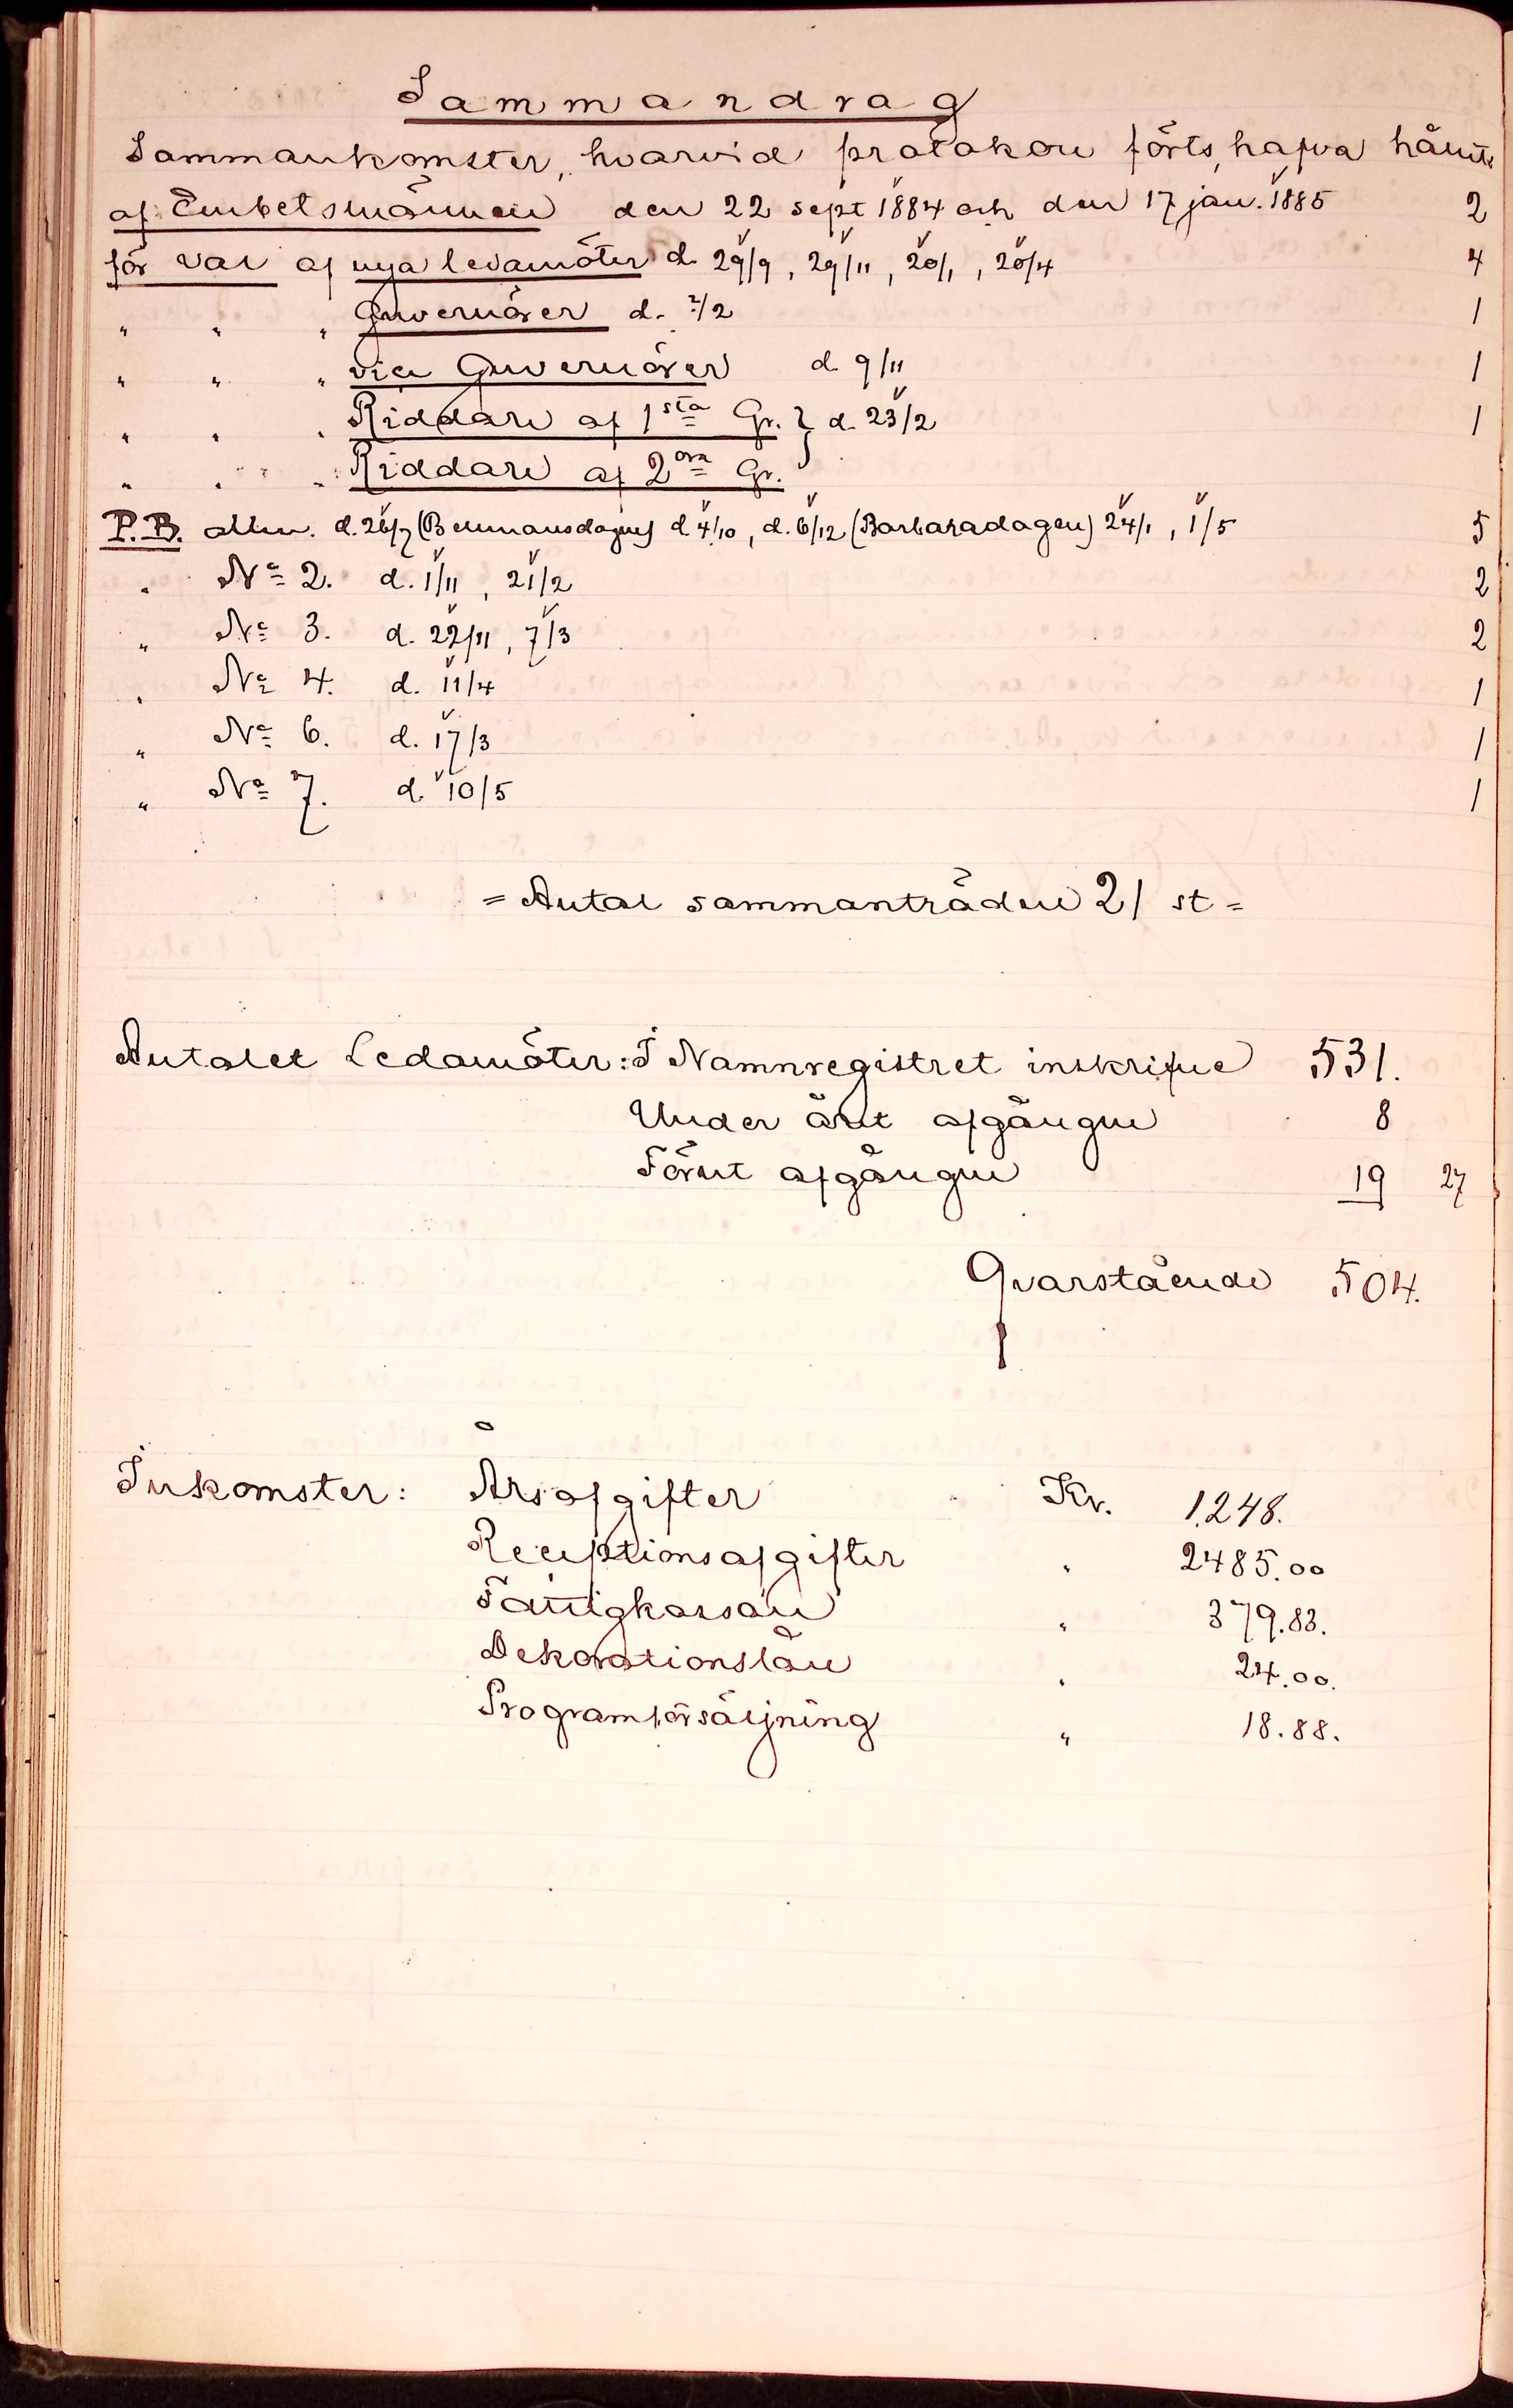 Sammandrag
Sammankomster, hvarvid protokoll förts, hafva hållits
af Embetsmännen den 22 sept 1884 och den 17 jan. 1885 2
för val af nya ledamöter d. 29/9, 29/11, 20/1, 20/4 4
" " " Guvernörer d. 2/2 1
" " " vice Guvernörer d. 9/11 1
" " " Riddare af 1sta Gr. } d. 23/2 1
" " " Riddare af 2dra Gr.
P.B. allm. d. 26/7 (Bellmansdagen) d. 4/10, d. 6/12 (Barbaradagen) 24/1, 1/5 5
" No 2. d. 1/11, 21/2 2
" No 3. d. 22/11, 7/3 2
" No 4. d. 11/4 1
" No 6. d. 17/3 1
" No 7. d 10/5 1
= Antal sammanträden 21 st =
Antalet Ledamöter: I Namnregistret inskrifne 531.
Under året afgångne 8
Förut afgångne 19 27
Qvarstående 504.
Inkomster: Årsafgifter Kr. 1,248.
Receptionsafgifter " 2485.00
Fattigkassan " 379.83.
Dekorationslån " 24.00.
Programförsäljning " 18.88.